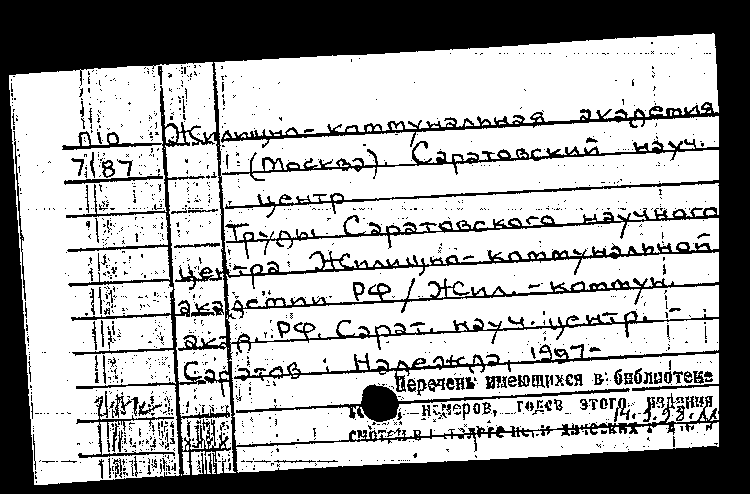 п10 Жилищно-коммунальная академия
7187 (Москва). Саратовский науч.
центр
Труды Саратовского научного
центра Жилищно-коммунальной
академии РФ / Жил.-коммун.
акад. РФ. Сарат. науч. центр. -
Саратов : Надежда, 1997-
Перечень имеющихся в библиотеке
номеров, годов этого издания
смотри в